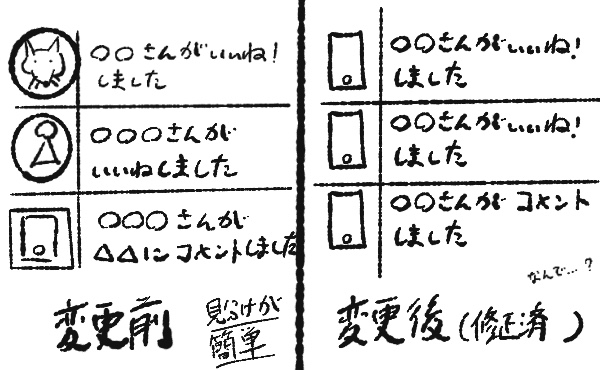 ○○さんがいいね!
しました
○○○さんが
いいねしました
○○○さんが
△△にコメントしました
変更前
見分けが
簡単
○○さんがいいね!
しました
○○さんがいいね!
しました
○○さんがコメント
しました
なんで…?
変更後(修正済)